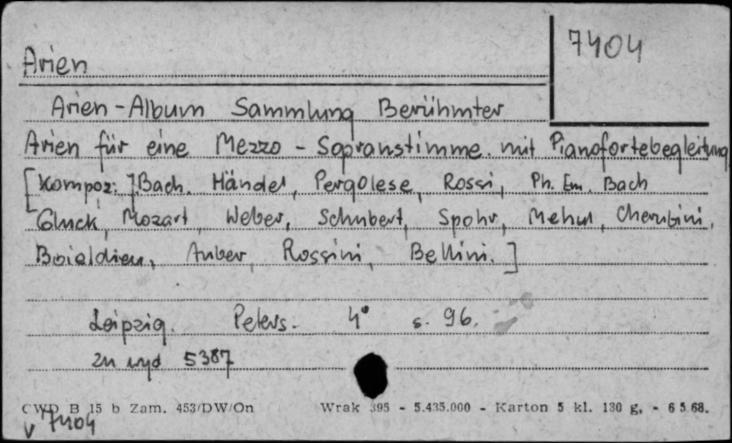 7404
Arien
Arien-Album Sammlung Berühmter
Arien für eine Mezzo-Sopranstimme mit Pianofortebegleitung
[Kompoz.:] Bach, Händel, Pergolese, Rossi, Ph. Em. Bach
Gluck, Mozart, Weber, Schubert, Spohr, Mehul, Cherubini,
Boieldieu, Auber, Rossini, Bellini.]
Leipzig. Peters. 4° s. 96.
zn wyd 5387
CWD B 15 b Zam. 453/DW/On Wrak 395 - 5.435.000 - Karton 5 kl. 130 g, - 6 5.68.
V 7404